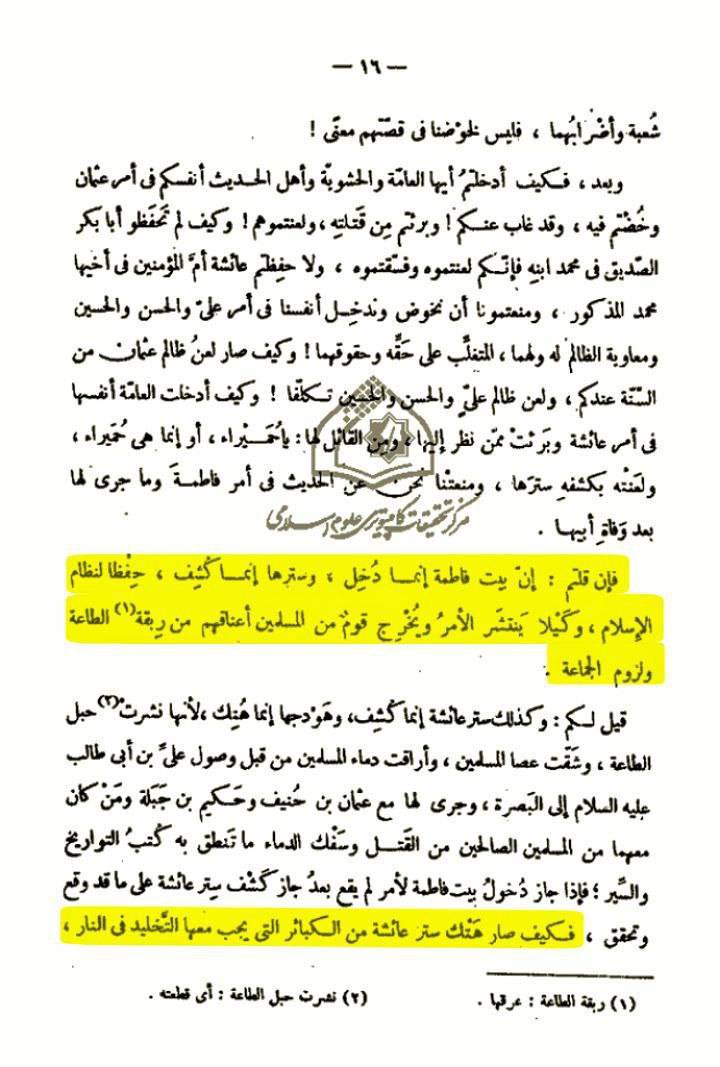 — ١٦ —
شُعبة وأضْرابُهما ، فليس لخوْضنا فى قصّتهم معنًى !
وبعد ، فكيف أدخلتمُ أيها العامّة والحشويّة وأهل الحديث أنفسكم فى أمر عثمان
وخُضْتم فيه ، وقد غاب عنكم ! وبرئتم مِن قَتَلتِه ، ولعنتموهم ! وكيف لم تحفَظو أبا بكر
الصّديق فى محمد ابنِه فإنّكم لعنتموه وفسّقتموه ، ولا حفِظتم عائشة أمَّ المؤمنين فى أخيها
محمد المذكور ، ومنعتمونا أن نخوض وندخِل أنفسنا فى أمر علىّ والحسن والحسين
ومعاوية الظالم له ولهما ، المتغلِّب على حَقِّه وحقوقهما ! وكيف صار لعنُ ظالم عثمان من
السّنّة عندكم ، ولعن ظالم علىٍّ والحسن والحسين تكلّفا ! وكيف أدخلت العامّة أنفسها
فى أمر عائشة وبَرئتْ ممّن نظر إليها ، ومِن القائل لها : يا حُمَيْراء ، أو إنما هى حُمَيراء ،
ولعَنْته بكشفهِ سترَها ، ومنعتْنا نحن عن الحديث فى أمر فاطمةَ وما جرى لها
بعد وَفاةِ أبيها .
مركز تحقيقات كامپيوترى علوم اسلامى
فإن قلتم : إنّ بيت فاطمة إنما دُخِل ، وسترها إنما كُشِف ، حِفْظا لنظام
الإسلام ، وكَيْلا يَنتشر الأمرُ ويُخْرِج قومٌ من المسلمين أعناقهم من رِبقة(١) الطاعة
ولزوم الجماعة .
قيل لكم : وكذلك ستر عائشة إنما كُشِف ، وهَوْدجها إنما هُتِك ، لأنها نشرتْ(٢) حبل
الطاعة ، وشقّت عصا المسلمين ، وأراقت دماء المسلمين من قبل وصول علىّ بن أبى طالب
عليه السلام إلى البَصرة ، وجرى لها مع عثمان بن حُنيف وحَكيم بن جَبَلة ومَنْ كان
معهما من المسلمين الصالحين من القَتل وسَفْك الدماء ما تَنطق به كُتبُ التواريخ
والسِّير ؛ فإذا جاز دُخولُ بيت فاطمة لأمر لم يقع بعدُ جاز كَشْف سِتر عائشة على ما قد وقع
وتحقق ، فكيف صار هَتْك ستر عائشة من الكبائر التى يجب معها التَّخليد فى النار ،
(١) ربقة الطاعة : عرقها . (٢) نشرت حبل الطاعة : أى قطعته .